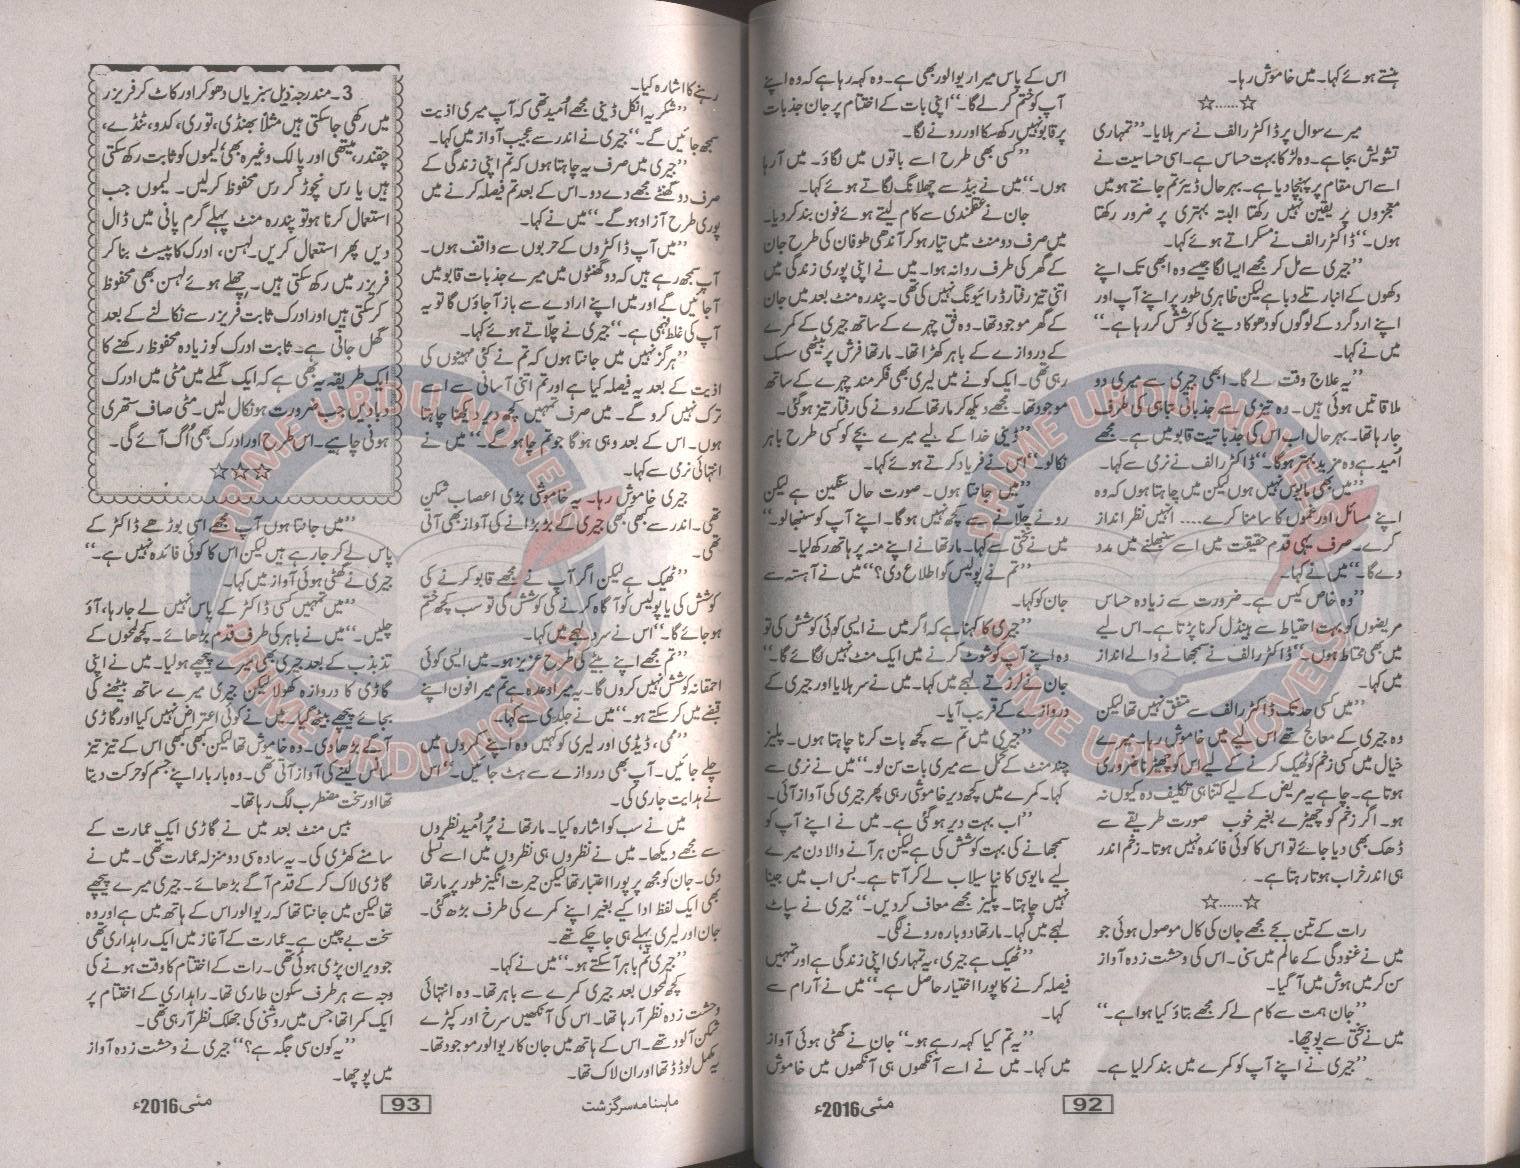 ہنستے ہوئے کہا۔ میں خاموش رہا۔
☆......☆
میرے سوال پر ڈاکٹر رالف نے سر ہلایا۔ ’’تمہاری
تشویش بجا ہے۔ وہ لڑکا بہت حساس ہے۔ اسی حساسیت نے
اسے اس مقام پر پہنچا دیا ہے۔ بہر حال ڈیئر تم جانتے ہو میں
معجزوں پر یقین نہیں رکھتا البتہ بہتری پر ضرور رکھتا
ہوں۔‘‘ ڈاکٹر رالف نے مسکراتے ہوئے کہا۔
’’جیری سے مل کر مجھے ایسا لگا جیسے وہ ابھی تک اپنے
دکھوں کے انبار تلے دبا ہے لیکن ظاہری طور پر اپنے آپ اور
اپنے اردگرد کے لوگوں کو دھوکا دینے کی کوشش کر رہا ہے۔‘‘
میں نے کہا۔
’’یہ علاج وقت لے گا۔ ابھی جیری سے میری دو
ملاقاتیں ہوئی ہیں۔ وہ تیزی سے جذباتی تباہی کی طرف
جا رہا تھا۔ بہر حال اب اس کی جذباتیت قابو میں ہے۔ مجھے
اُمید ہے وہ مزید بہتر ہوگا۔‘‘ ڈاکٹر رالف نے نرمی سے کہا۔
’’میں بھی مایوس نہیں ہوں لیکن میں چاہتا ہوں کہ وہ
اپنے مسائل اور غموں کا سامنا کرے.... انہیں نظر انداز
کرے۔ صرف یہی قدم حقیقت میں اسے سنبھلنے میں مدد
دے گا۔‘‘ میں نے کہا۔
’’وہ خاص کیس ہے۔ ضرورت سے زیادہ حساس
مریضوں کو بہت احتیاط سے ہینڈل کرنا پڑتا ہے۔ اس لیے
میں بھی محتاط ہوں۔‘‘ ڈاکٹر رالف نے سمجھانے والے انداز
میں کہا۔
’’میں کسی حد تک ڈاکٹر رالف سے متفق نہیں تھا لیکن
وہ جیری کے معالج تھے اس لیے میں خاموش رہا۔ میرے
خیال میں کسی زخم کو ٹھیک کرنے کے لیے اس کو چھیڑنا ضروری
ہوتا ہے۔ چاہے یہ مریض کے لیے کتنا ہی تکلیف دہ کیوں نہ
ہو۔ اگر زخم کو چھیڑے بغیر خوب صورت طریقے سے
ڈھک بھی دیا جائے تو اس کا کوئی فائدہ نہیں ہوتا۔ زخم اندر
ہی اندر خراب ہوتا رہتا ہے۔
☆......☆
رات کے تین بجے مجھے جان کی کال موصول ہوئی جو
میں نے غنودگی کے عالم میں سنی۔ اس کی وحشت زدہ آواز
سن کر میں ہوش میں آ گیا۔
’’جان ہمت سے کام لے کر مجھے بتاؤ کیا ہوا ہے۔‘‘
میں نے سختی سے پوچھا۔
’’جیری نے اپنے آپ کو کمرے میں بند کر لیا ہے۔
اس کے پاس میرا ریوالور بھی ہے۔ وہ کہہ رہا ہے کہ وہ اپنے
آپ کو ختم کر لے گا۔‘‘ اپنی بات کے اختتام پر جان جذبات
پر قابو نہیں رکھ سکا اور رونے لگا۔
’’کسی بھی طرح اسے باتوں میں لگاؤ۔ میں آ رہا
ہوں۔‘‘ میں نے بیڈ سے چھلانگ لگاتے ہوئے کہا۔
جان نے عقلمندی سے کام لیتے ہوئے فون بند کر دیا۔
میں صرف دو منٹ میں تیار ہو کر آندھی طوفان کی طرح جان
کے گھر کی طرف روانہ ہوا۔ میں نے اپنی پوری زندگی میں
اتنی تیز رفتار ڈرائیونگ نہیں کی تھی۔ پندرہ منٹ بعد میں جان
کے گھر موجود تھا۔ وہ فق چہرے کے ساتھ جیری کے کمرے
کے دروازے کے باہر کھڑا تھا۔ مارتھا فرش پر بیٹھی سسک
رہی تھی۔ ایک کونے میں لیری بھی فکر مند چہرے کے ساتھ
موجود تھا۔ مجھے دیکھ کر مارتھا کے رونے کی رفتار تیز ہو گئی۔
’’ڈینی خدا کے لیے میرے بچے کو کسی طرح باہر
نکالو۔‘‘ اس نے فریاد کرتے ہوئے کہا۔
’’میں جانتا ہوں۔ صورت حال سنگین ہے لیکن
رونے چلّانے سے کچھ نہیں ہوگا۔ اپنے آپ کو سنبھالو۔‘‘
میں نے سختی سے کہا۔ مارتھا نے اپنے منہ پر ہاتھ رکھ لیا۔
’’تم نے پولیس کو اطلاع دی؟‘‘ میں نے آہستہ سے
جان کو کہا۔
’’جیری کا کہنا ہے کہ اگر میں نے ایسی کوئی کوشش کی تو
وہ اپنے آپ کو شوٹ کرنے میں ایک منٹ نہیں لگائے گا۔‘‘
جان نے لرزتے لہجے میں کہا۔ میں نے سر ہلایا اور جیری کے
دروازے کے قریب آیا۔
’’جیری میں تم سے کچھ بات کرنا چاہتا ہوں۔ پلیز
چند منٹ کے تحمل سے میری بات سن لو۔‘‘ میں نے نرمی سے
کہا۔ کمرے میں کچھ دیر خاموشی رہی پھر جیری کی آواز آئی۔
’’اب بہت دیر ہو گئی ہے۔ میں نے اپنے آپ کو
سمجھانے کی بہت کوشش کی ہے لیکن ہر آنے والا دن میرے
لیے مایوسی کا نیا سیلاب لے کر آتا ہے۔ بس اب میں جینا
نہیں چاہتا۔ پلیز مجھے معاف کر دیں۔‘‘ جیری نے سپاٹ
لہجے میں کہا۔ مارتھا دوبارہ رونے لگی۔
’’ٹھیک ہے جیری، یہ تمہاری اپنی زندگی ہے اور تمہیں
فیصلہ کرنے کا پورا اختیار حاصل ہے۔‘‘ میں نے آرام سے
کہا۔
’’یہ تم کیا کہہ رہے ہو۔‘‘ جان نے گھٹی ہوئی آواز
میں کہا۔ میں نے اسے آنکھوں ہی آنکھوں میں خاموش
92
مئی 2016ء
رہنے کا اشارہ کیا۔
’’شکریہ انکل ڈینی مجھے اُمید تھی کہ آپ میری اذیت
سمجھ جائیں گے۔‘‘ جیری نے اندر سے عجیب آواز میں کہا۔
’’جیری میں صرف یہ چاہتا ہوں کہ تم اپنی زندگی کے
صرف دو گھنٹے مجھے دے دو۔ اس کے بعد تم فیصلہ کرنے میں
پوری طرح آزاد ہو گے۔‘‘ میں نے کہا۔
’’میں آپ ڈاکٹروں کے حربوں سے واقف ہوں۔
آپ سمجھ رہے ہیں کہ دو گھنٹوں میں میرے جذبات قابو میں
آ جائیں گے اور میں اپنے ارادے سے باز آ جاؤں گا تو یہ
آپ کی غلط فہمی ہے۔‘‘ جیری نے چلّاتے ہوئے کہا۔
’’ہرگز نہیں میں جانتا ہوں کہ تم نے کئی مہینوں کی
اذیت کے بعد یہ فیصلہ کیا ہے اور تم اتنی آسانی سے اسے
ترک نہیں کرو گے۔ میں صرف تمہیں کچھ دیر دیکھنا چاہتا
ہوں۔ اس کے بعد وہی ہوگا جو تم چاہو گے۔‘‘ میں نے
انتہائی نرمی سے کہا۔
جیری خاموش رہا۔ یہ خاموشی بڑی اعصاب شکن
تھی۔ اندر سے کبھی کبھی جیری کے بڑبڑانے کی آواز بھی آتی
تھی۔
’’ٹھیک ہے لیکن اگر آپ نے مجھے قابو کرنے کی
کوشش کی یا پولیس کو آگاہ کرنے کی کوشش کی تو سب کچھ ختم
ہو جائے گا۔‘‘ اس نے سرد لہجے میں کہا۔
’’تم مجھے اپنے بیٹے کی طرح عزیز ہو۔ میں ایسی کوئی
احمقانہ کوشش نہیں کروں گا۔ یہ میرا وعدہ ہے تم میرا فون اپنے
قبضے میں کر سکتے ہو۔‘‘ میں نے جلدی سے کہا۔
’’ممی، ڈیڈی اور لیری کو کہیں وہ اپنے کمروں میں
چلے جائیں۔ آپ بھی دروازے سے ہٹ جائیں۔‘‘ اس
نے ہدایت جاری کی۔
میں نے سب کو اشارہ کیا۔ مارتھا نے پُر اُمید نظروں
سے مجھے دیکھا۔ میں نے نظروں ہی نظروں میں اسے تسلی
دی۔ جان کو مجھ پر پورا اعتبار تھا لیکن حیرت انگیز طور پر مارتھا
بھی ایک لفظ ادا کیے بغیر اپنے کمرے کی طرف بڑھ گئی۔
جان اور لیری پہلے ہی جا چکے تھے۔
’’جیری تم باہر آ سکتے ہو۔‘‘ میں نے کہا۔
کچھ لمحوں بعد جیری کمرے سے باہر تھا۔ وہ انتہائی
وحشت زدہ نظر آ رہا تھا۔ اس کی آنکھیں سرخ اور کپڑے
شکن آلود تھے۔ اس کے ہاتھ میں جان کا ریوالور موجود تھا۔
یہ مکمل لوڈڈ تھا اور ان لاک تھا۔
3۔ مندرجہ ذیل سبزیاں دھو کر اور کاٹ کر فریزر
میں رکھی جا سکتی ہیں مثلاً بھنڈی، توری، کدو، ٹنڈے،
چقندر، میتھی اور پالک وغیرہ بھی، لیموں کو ثابت رکھ سکتی
ہیں یا رس نچوڑ کر رس محفوظ کر لیں۔ لیموں جب
استعمال کرنا ہو تو پندرہ منٹ پہلے گرم پانی میں ڈال
دیں پھر استعمال کریں۔ لہسن، ادرک کا پیسٹ بنا کر
فریزر میں رکھ سکتی ہیں۔ چھلے ہوئے لہسن بھی محفوظ
کر سکتی ہیں اور ادرک ثابت فریزر سے نکالنے کے بعد
گھل جاتی ہے۔ ثابت ادرک کو زیادہ محفوظ رکھنے کا
ایک طریقہ یہ بھی ہے کہ ایک گملے میں مٹی میں ادرک
دبا دیں جب ضرورت ہو نکال لیں۔ مٹی صاف ستھری
ہونی چاہیے۔ اس طرح اور ادرک بھی اُگ آئے گی۔
☆☆☆
’’میں جانتا ہوں آپ مجھے اسی بوڑھے ڈاکٹر کے
پاس لے کر جا رہے ہیں لیکن اس کا کوئی فائدہ نہیں ہے۔‘‘
جیری نے گھٹی ہوئی آواز میں کہا۔
’’میں تمہیں کسی ڈاکٹر کے پاس نہیں لے جا رہا، آؤ
چلیں۔‘‘ میں نے باہر کی طرف قدم بڑھائے۔ کچھ لمحوں کے
تذبذب کے بعد جیری بھی میرے پیچھے ہو لیا۔ میں نے اپنی
گاڑی کا دروازہ کھولا لیکن جیری میرے ساتھ بیٹھنے کی
بجائے پیچھے بیٹھ گیا۔ میں نے کوئی اعتراض نہیں کیا اور گاڑی
آگے بڑھا دی۔ وہ خاموش تھا لیکن کبھی کبھی اس کے تیز تیز
سانس لینے کی آواز آتی تھی۔ وہ بار بار اپنے جسم کو حرکت دیتا
تھا اور سخت مضطرب لگ رہا تھا۔
بیس منٹ بعد میں نے گاڑی ایک عمارت کے
سامنے کھڑی کی۔ یہ سادہ سی دو منزلہ عمارت تھی۔ میں نے
گاڑی لاک کر کے قدم آگے بڑھائے۔ جیری میرے پیچھے
تھا لیکن میں جانتا تھا کہ ریوالور اس کے ہاتھ میں ہے اور وہ
سخت بے چین ہے۔ عمارت کے آغاز میں ایک راہداری تھی
جو ویران پڑی ہوئی تھی۔ رات کے اختتام کا وقت ہونے کی
وجہ سے ہر طرف سکون طاری تھا۔ راہداری کے اختتام پر
ایک کمرا تھا جس میں روشنی کی جھلک نظر آ رہی تھی۔
’’یہ کون سی جگہ ہے؟‘‘ جیری نے وحشت زدہ آواز
میں پوچھا۔
ماہنامہ سرگزشت
93
مئی 2016ء
PRIME URDU NOVELS
PRIME URDU NOVELS
PRIME URDU NOVELS
PRIME URDU NOVELS